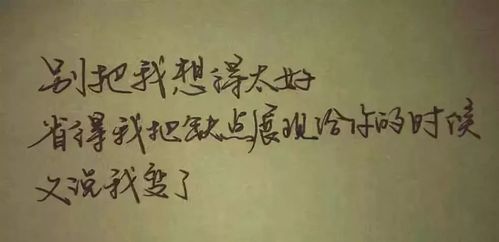 别把我想得太好
省得我把缺点展现给你的时候
又说我变了